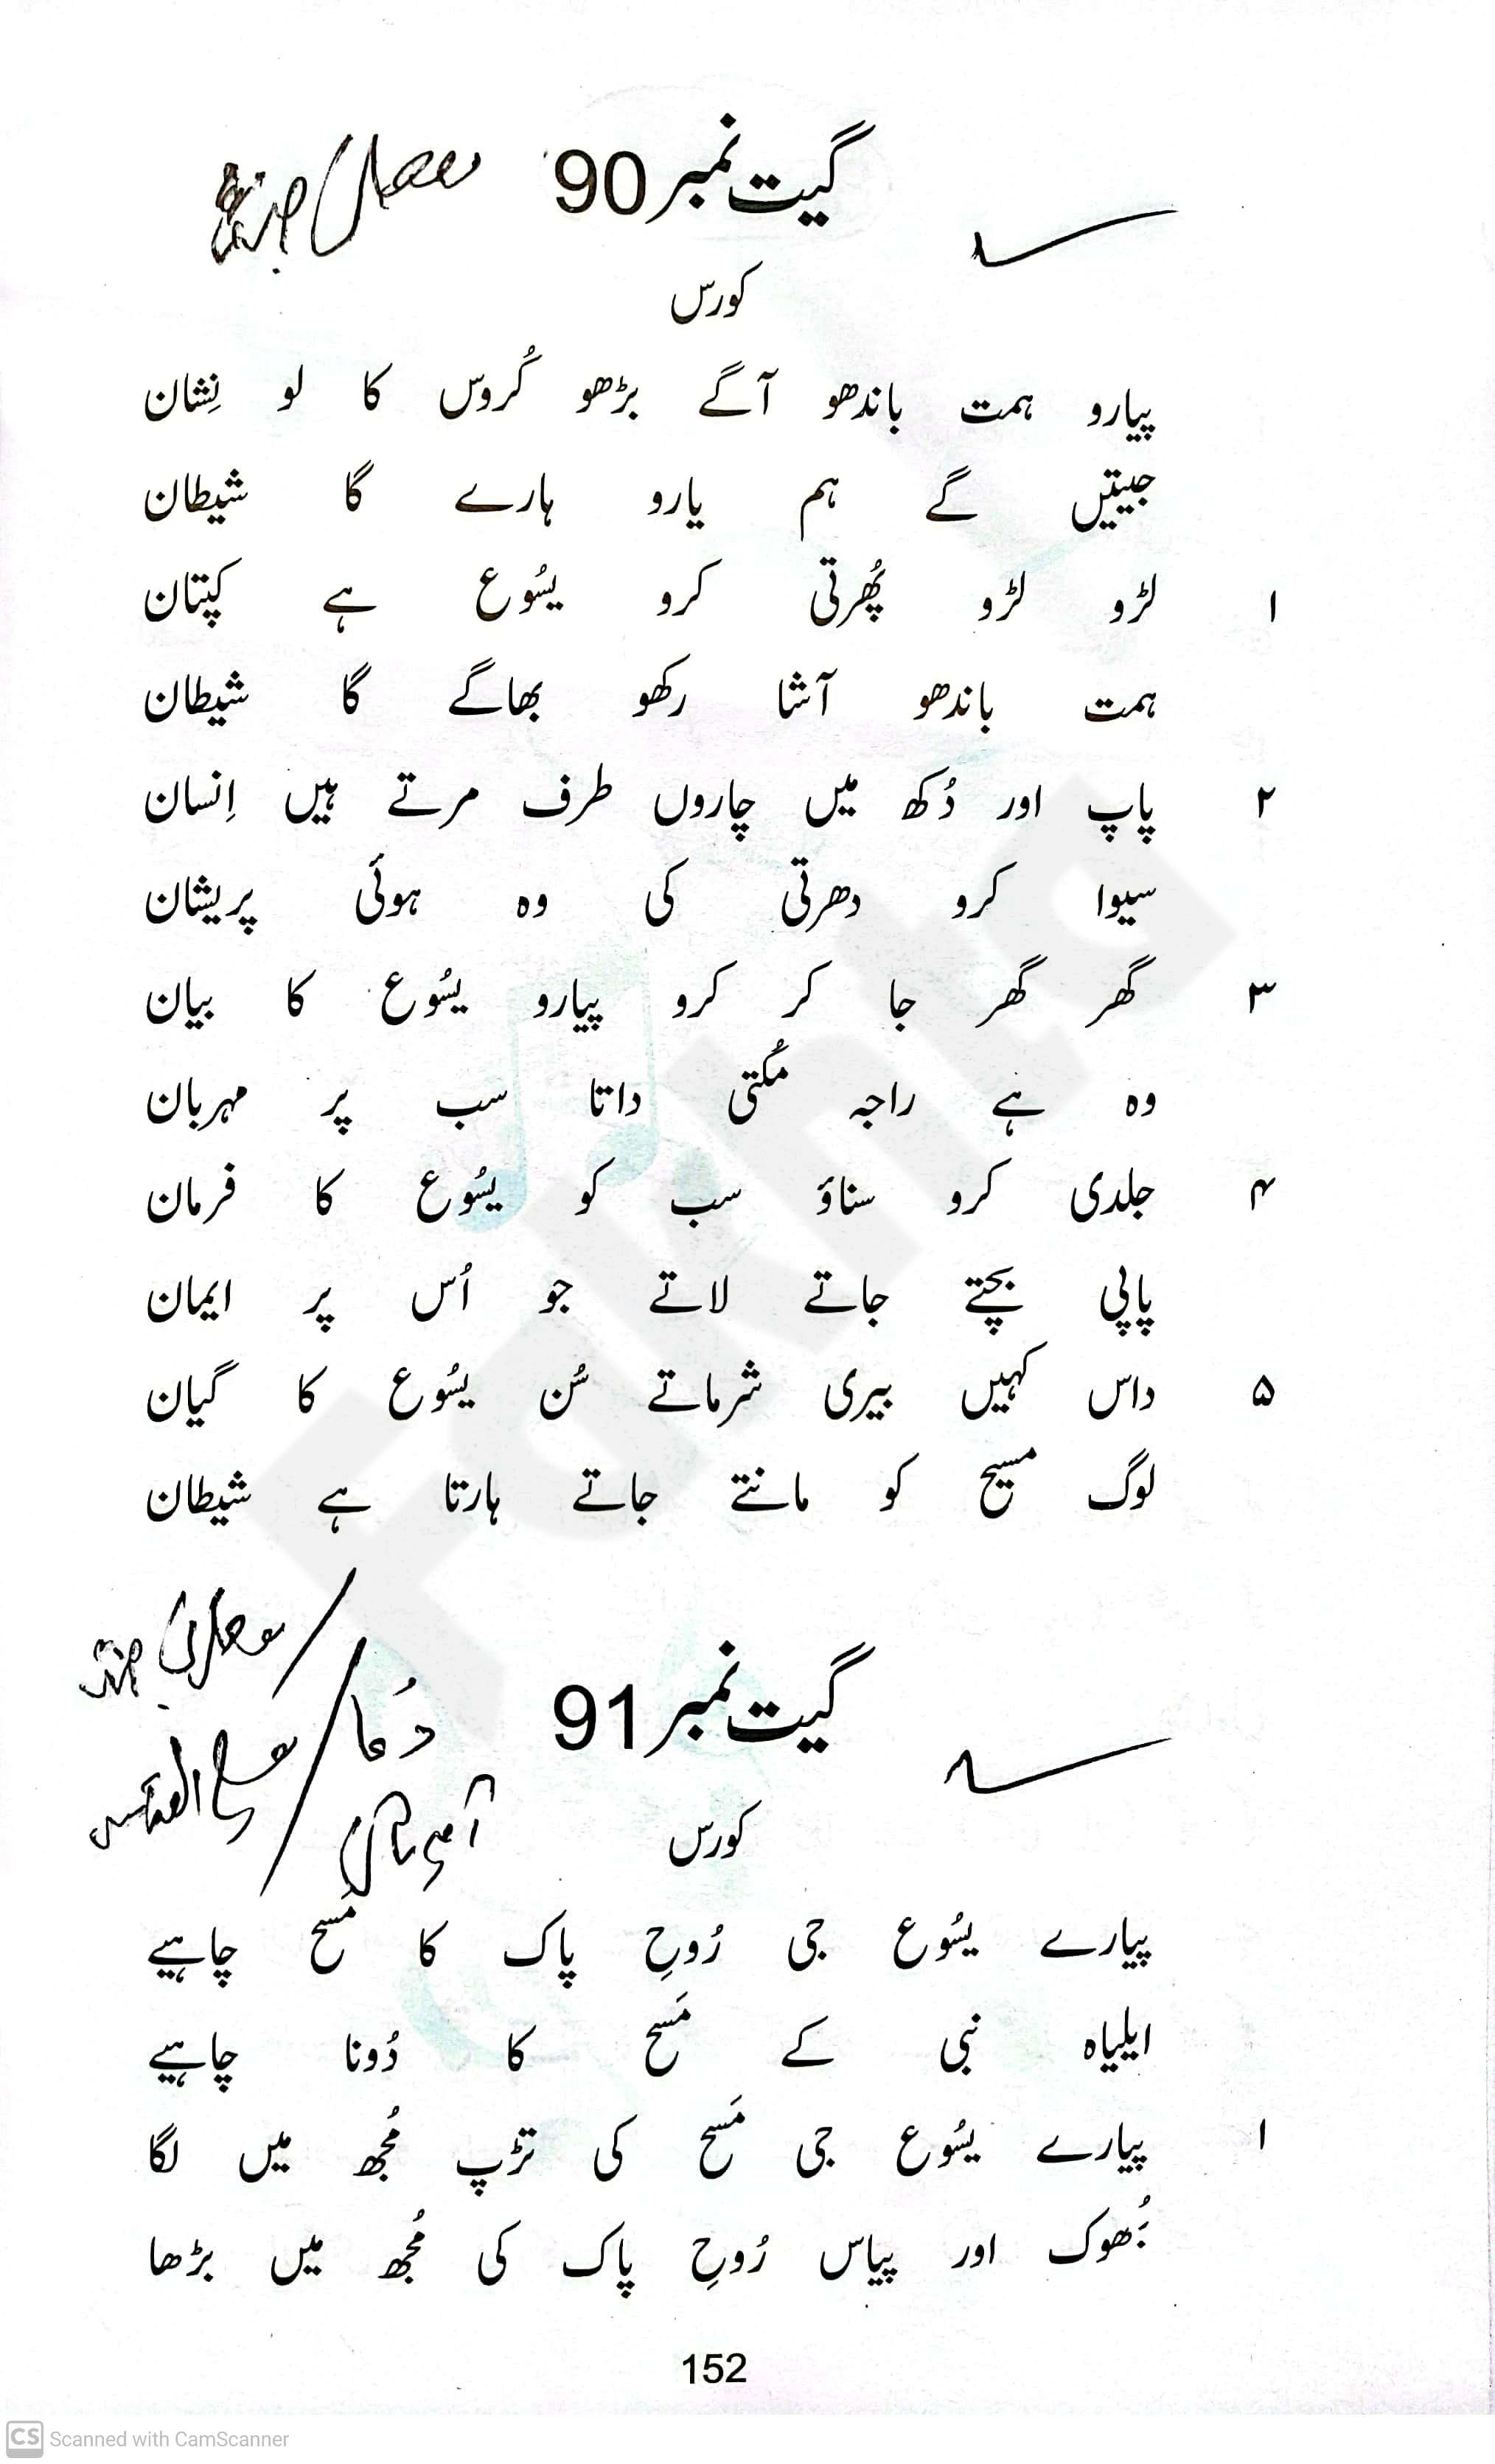 گیت نمبر 90
کورس
پیارو ہمت باندھو آگے بڑھو کُروس کا لو نِشان
جیتیں گے ہم یارو ہارے گا شیطان
۱ لڑو لڑو پُھرتی کرو یسُوع ہے کپتان
ہمت باندھو آشا رکھو بھاگے گا شیطان
۲ پاپ اور دُکھ میں چاروں طرف مرتے ہیں اِنسان
سیوا کرو دھرتی کی وہ ہوئی پریشان
۳ گھر گھر جا کر کرو پیارو یسُوع کا بیان
وہ ہے راجہ مُکتی داتا سب پر مہربان
۴ جلدی کرو سناؤ سب کو یسُوع کا فرمان
پاپی بچتے جاتے لاتے جو اُس پر ایمان
۵ داس کہیں بیری شرماتے سُن یسُوع کا گیان
لوگ مسیح کو مانتے جاتے ہارتا ہے شیطان
گیت نمبر 91
دُعا
کورس
پیارے یسُوع جی رُوحِ پاک کا مَسح چاہیے
ایلیاہ نبی کے مَسح کا دُونا چاہیے
۱ پیارے یسُوع جی مَسح کی تڑپ مُجھ میں لگا
بُھوک اور پیاس رُوحِ پاک کی مُجھ میں بڑھا
152
Fakhta
CS Scanned with CamScanner